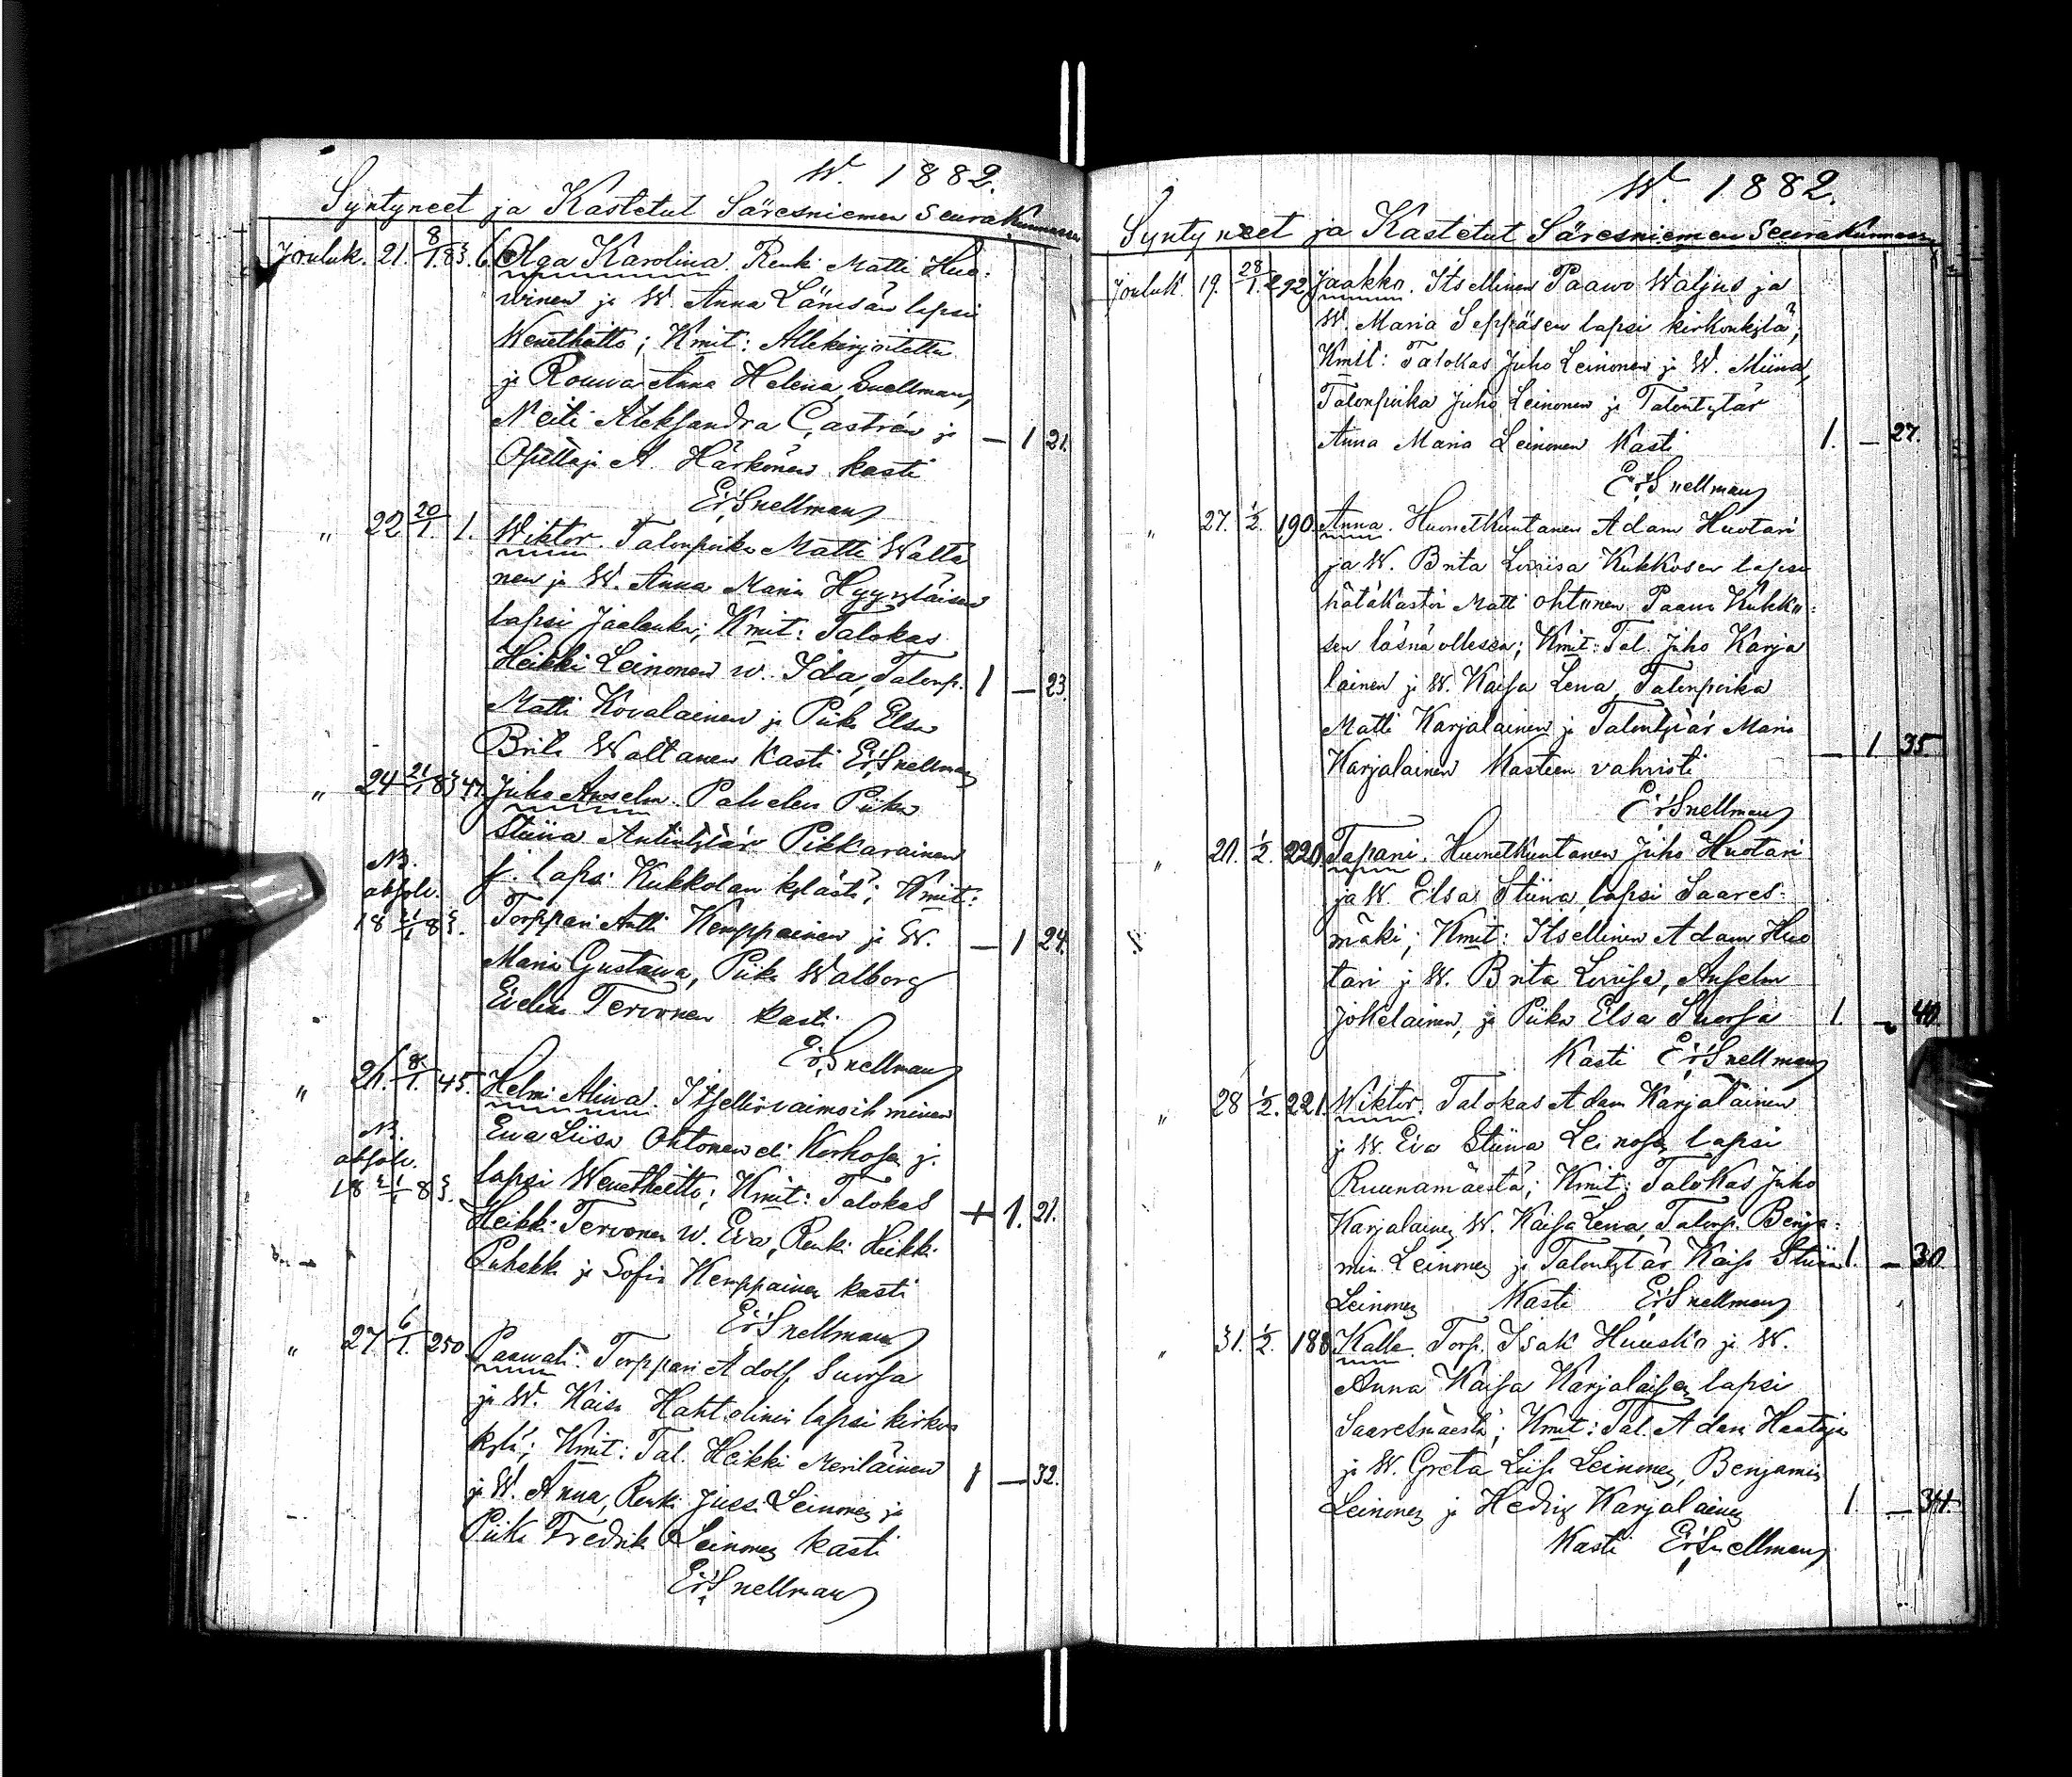 W. 1882.
Syntyneet ja Kastetut Säresniemen Seurakunnassa
Jouluk. 21. 8/1.83. 6. Olga Karolina. Renki Matti Huo-
vinen ja W. Anna Lämsän lapsi
Wenetheitto; Kmit: Allekirjoitettu
ja Rouwa Anna Helena Snellman,
Neiti Aleksandra Castrén ja
— 1 21.
Opettaja A. Härkönen kasti
Er. Snellman
" 22 20/1. 1. Wiktor. Talonpoika Matti Walta
nen ja W. Anna Maria Hyyryläisen
lapsi Jaalanka; Kmit: Talokas
Heikki Leinonen w. Ida, Talonp. 1 — 23.
Matti Kovalainen ja Piika Elsa
Brita Waltanen kasti Er. Snellman
" 24 21/1 83 47. Juho Anselm. Palvelus Piika
Stiina Antintytär Pikkarainen
NB. j. lapsi Kukkolan kylästä; Kmit:
absolv.
18 21/1 83. Torppari Antti Kemppainen ja W. — 1 24.
Maria Gustawa, Piika Walborg
Evelina Tervonen kasti
Er. Snellman
" 26. 8/1. 45. Helmi Alina. Itsellisvaimoih minen
NB. Ewa Liisa Ohtonen eli Korhosen j.
absolv.
18 21/1 83. lapsi Wenetheitto; Kmit: Talokas
Heikki Tervonen w. Eva, Renki Heikki + 1. 21.
Puhakka ja Sofia Kemppainen kasti
Er. Snellman
" 27 6/1. 250 Paawali. Torppari Adolf Suorsa
ja W. Kaisa Hahtolinin lapsi kirkon
kylä; Kmit: Tal. Heikki Meriläinen
ja W. Anna, Renki Jussi Leinonen ja 1 — 32.
Piika Fredrika Leinonen kasti
Er. Snellman
W. 1882.
Syntyneet ja Kastetut Säresniemen Seurakunnassa
Jouluk. 19. 28/1. 292 Jaakko. Itsellinen Paawo Waljus ja
W. Maria Seppäsen lapsi kirkonkylä;
Kmit: Talokas Juho Leinonen ja W. Miina,
Talonpoika Juho Leinonen ja Talontytär
Anna Maria Leinonen Kasti 1. — 27.
Er. Snellman
" 27. 1/2. 190. Anna. Huonetkuntanen Adam Huotari
ja W. Brita Loviisa Kukkosen lapsi
hätäkastoi Matti Ohtonen Paavo Kukko-
sen läsnä ollessa; Kmit: Tal. Juho Karja
lainen ja W. Kaisa Lena, Talonpoika
Matti Karjalainen ja Talontytär Maria
Karjalainen Kasteen vahvisti — 1 35
Er. Snellman
" 21. 1/2. 220. Tapani. Huonetkuntanen Juho Huotari
ja W. Elsa Stiina lapsi Saares-
mäki; Kmit: Itsellinen Adam Huo
tari ja W. Brita Loviisa, Anselm
Jokelainen, ja Piika Elsa Suorsa 1. — 40.
Kasti Er. Snellman
" 28 1/2. 221. Wiktor. Talokas Adam Karjalainen
ja W. Eva Stiina Leinosen lapsi
Ruunamäestä; Kmit: Talokas Juho
Karjalainen W. Kaisa Lena, Talonp. Benja-
min Leinonen ja Talontytär Kaisa Stiina 1. — 30.
Leinonen Kasti Er. Snellman
" 31. 1/2. 188 Kalle. Torp. Isak Huusko ja W.
Anna Kaisa Karjalaisen lapsi
Saaresmäestä; Kmit: Tal. Adam Haataja
ja W. Greta Liisa Leinonen, Benjamin
Leinonen ja Hedvig Karjalainen 1. — 34.
Kasti Er. Snellman